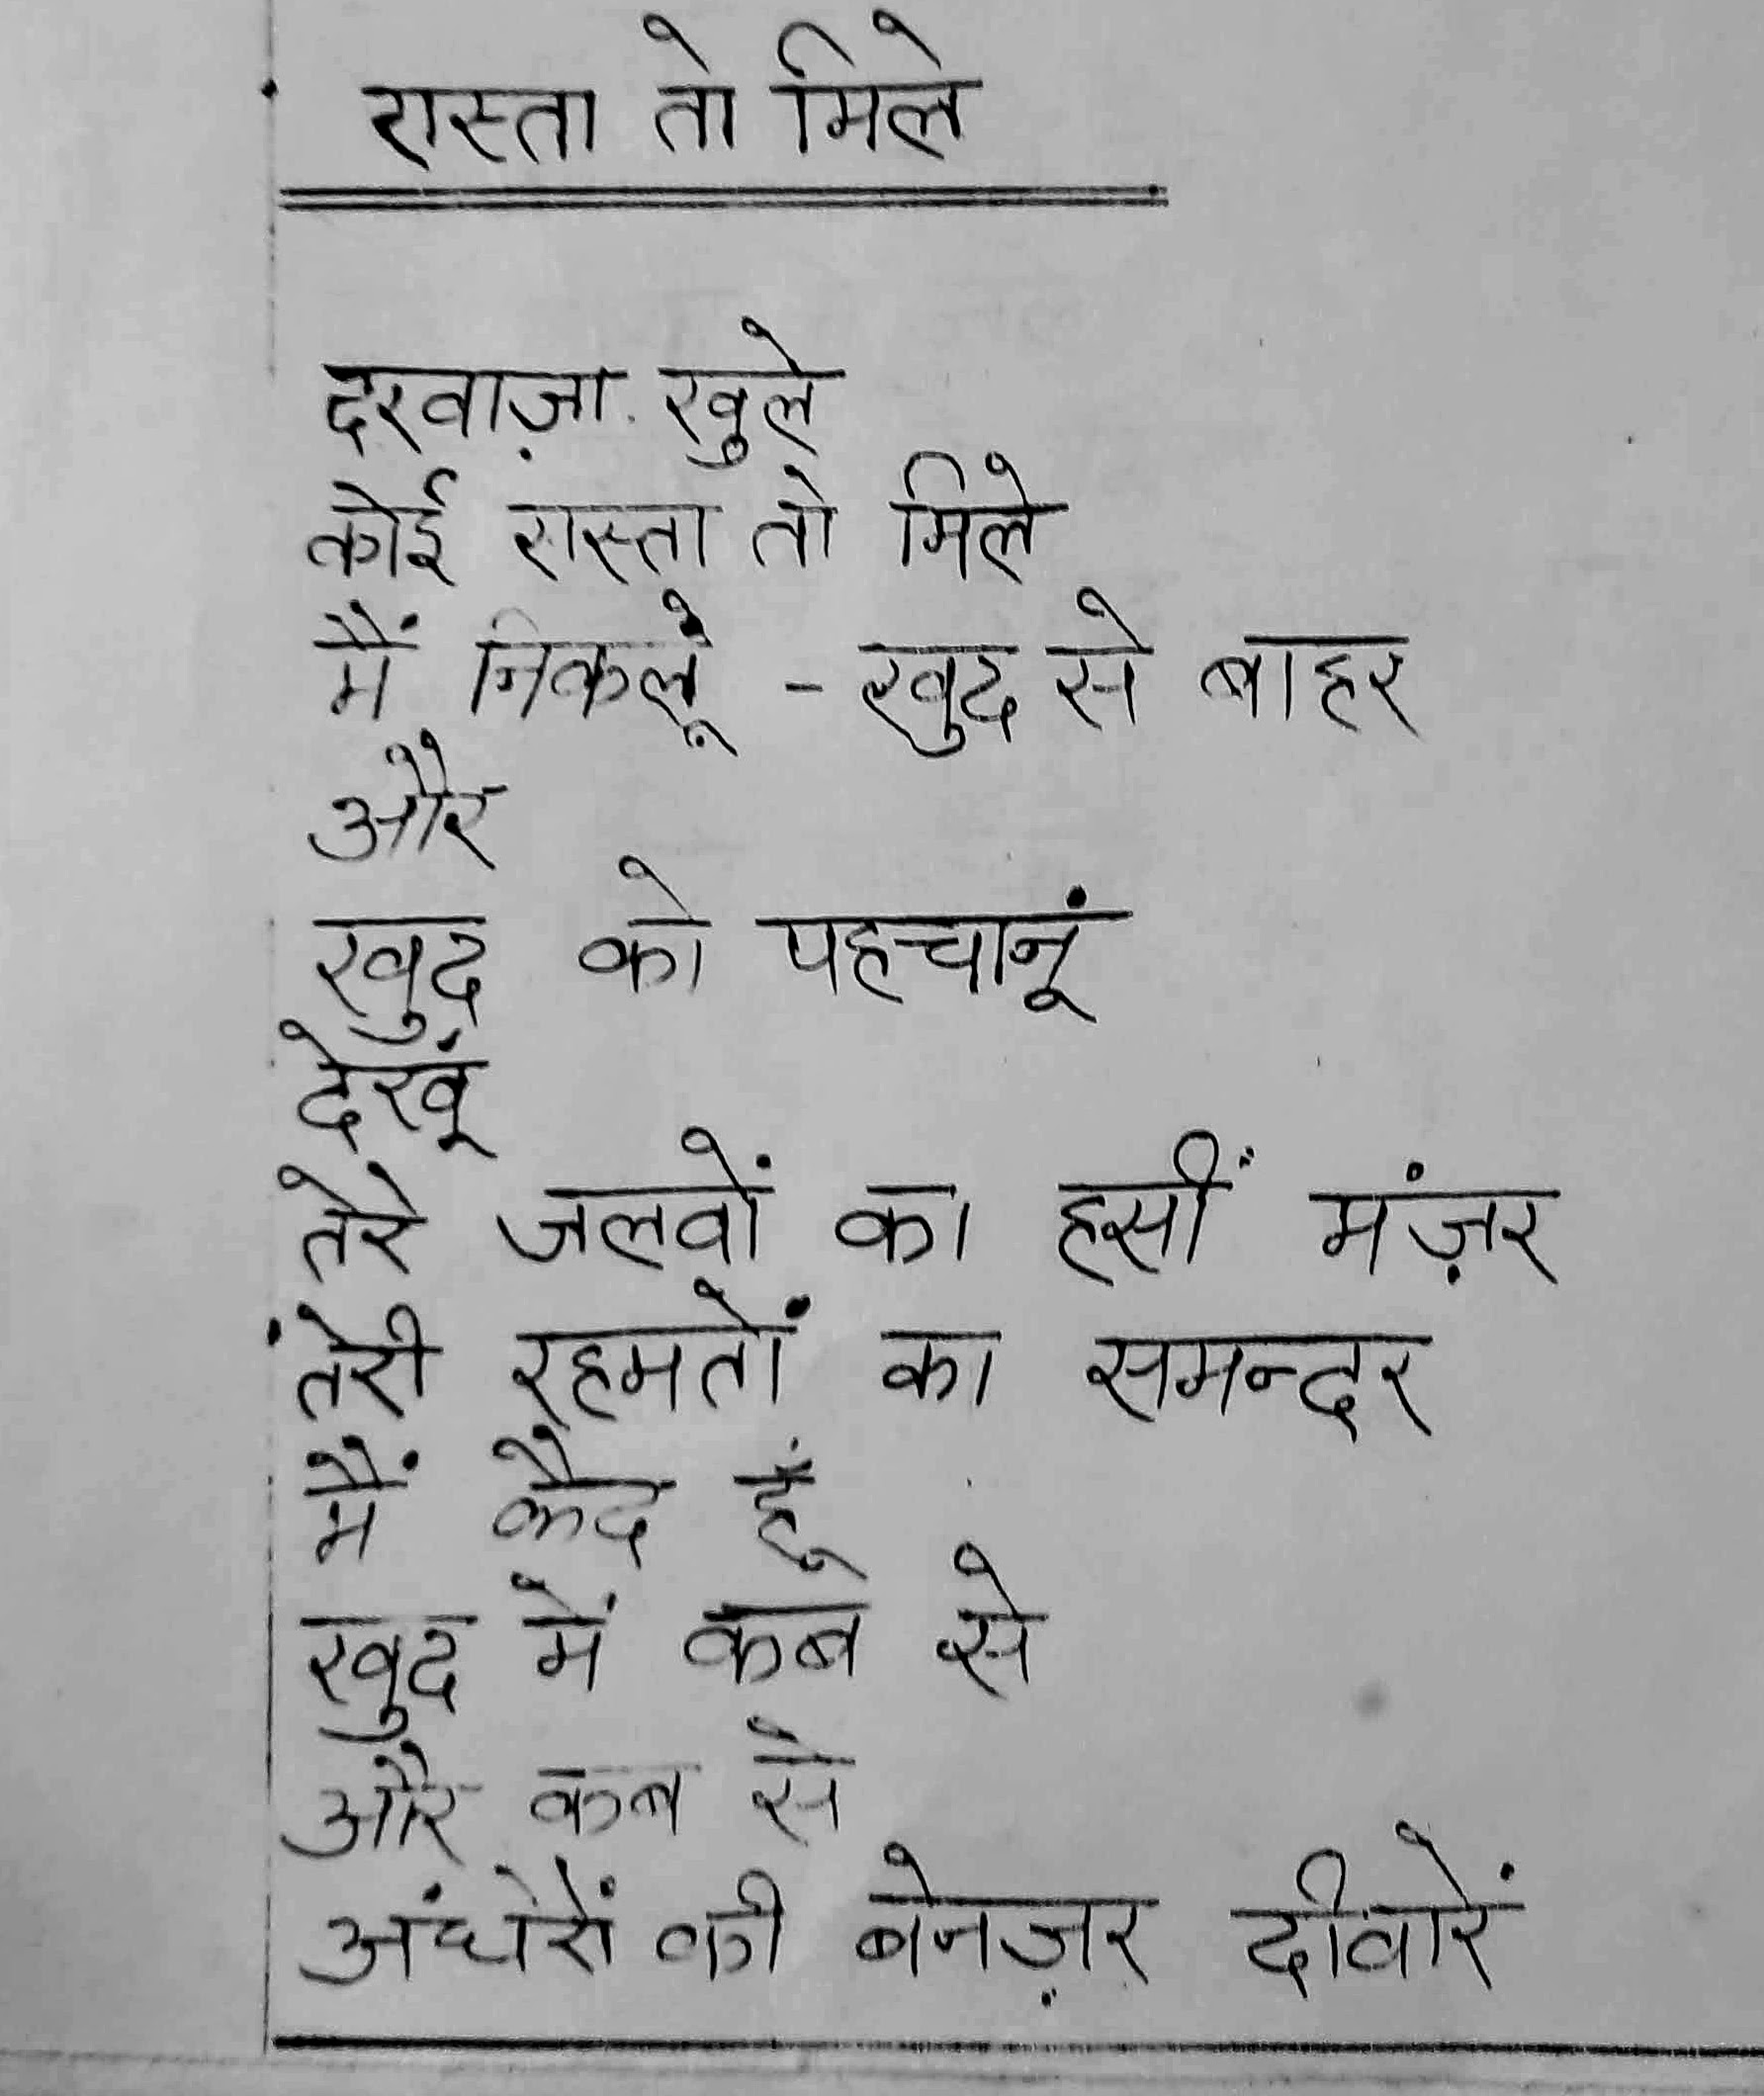 रास्ता तो मिले
दरवाज़ा खुले
कोई रास्ता तो मिले
मैं निकलूं - खुद से बाहर
और
खुद को पहचानूं
देखूं
तेरे जलवों का हसीं मंज़र
तेरी रहमतों का समन्दर
मैं कैद हूँ
खुद में कब से
और कब से
अंधेरों की बेनज़र दीवारें